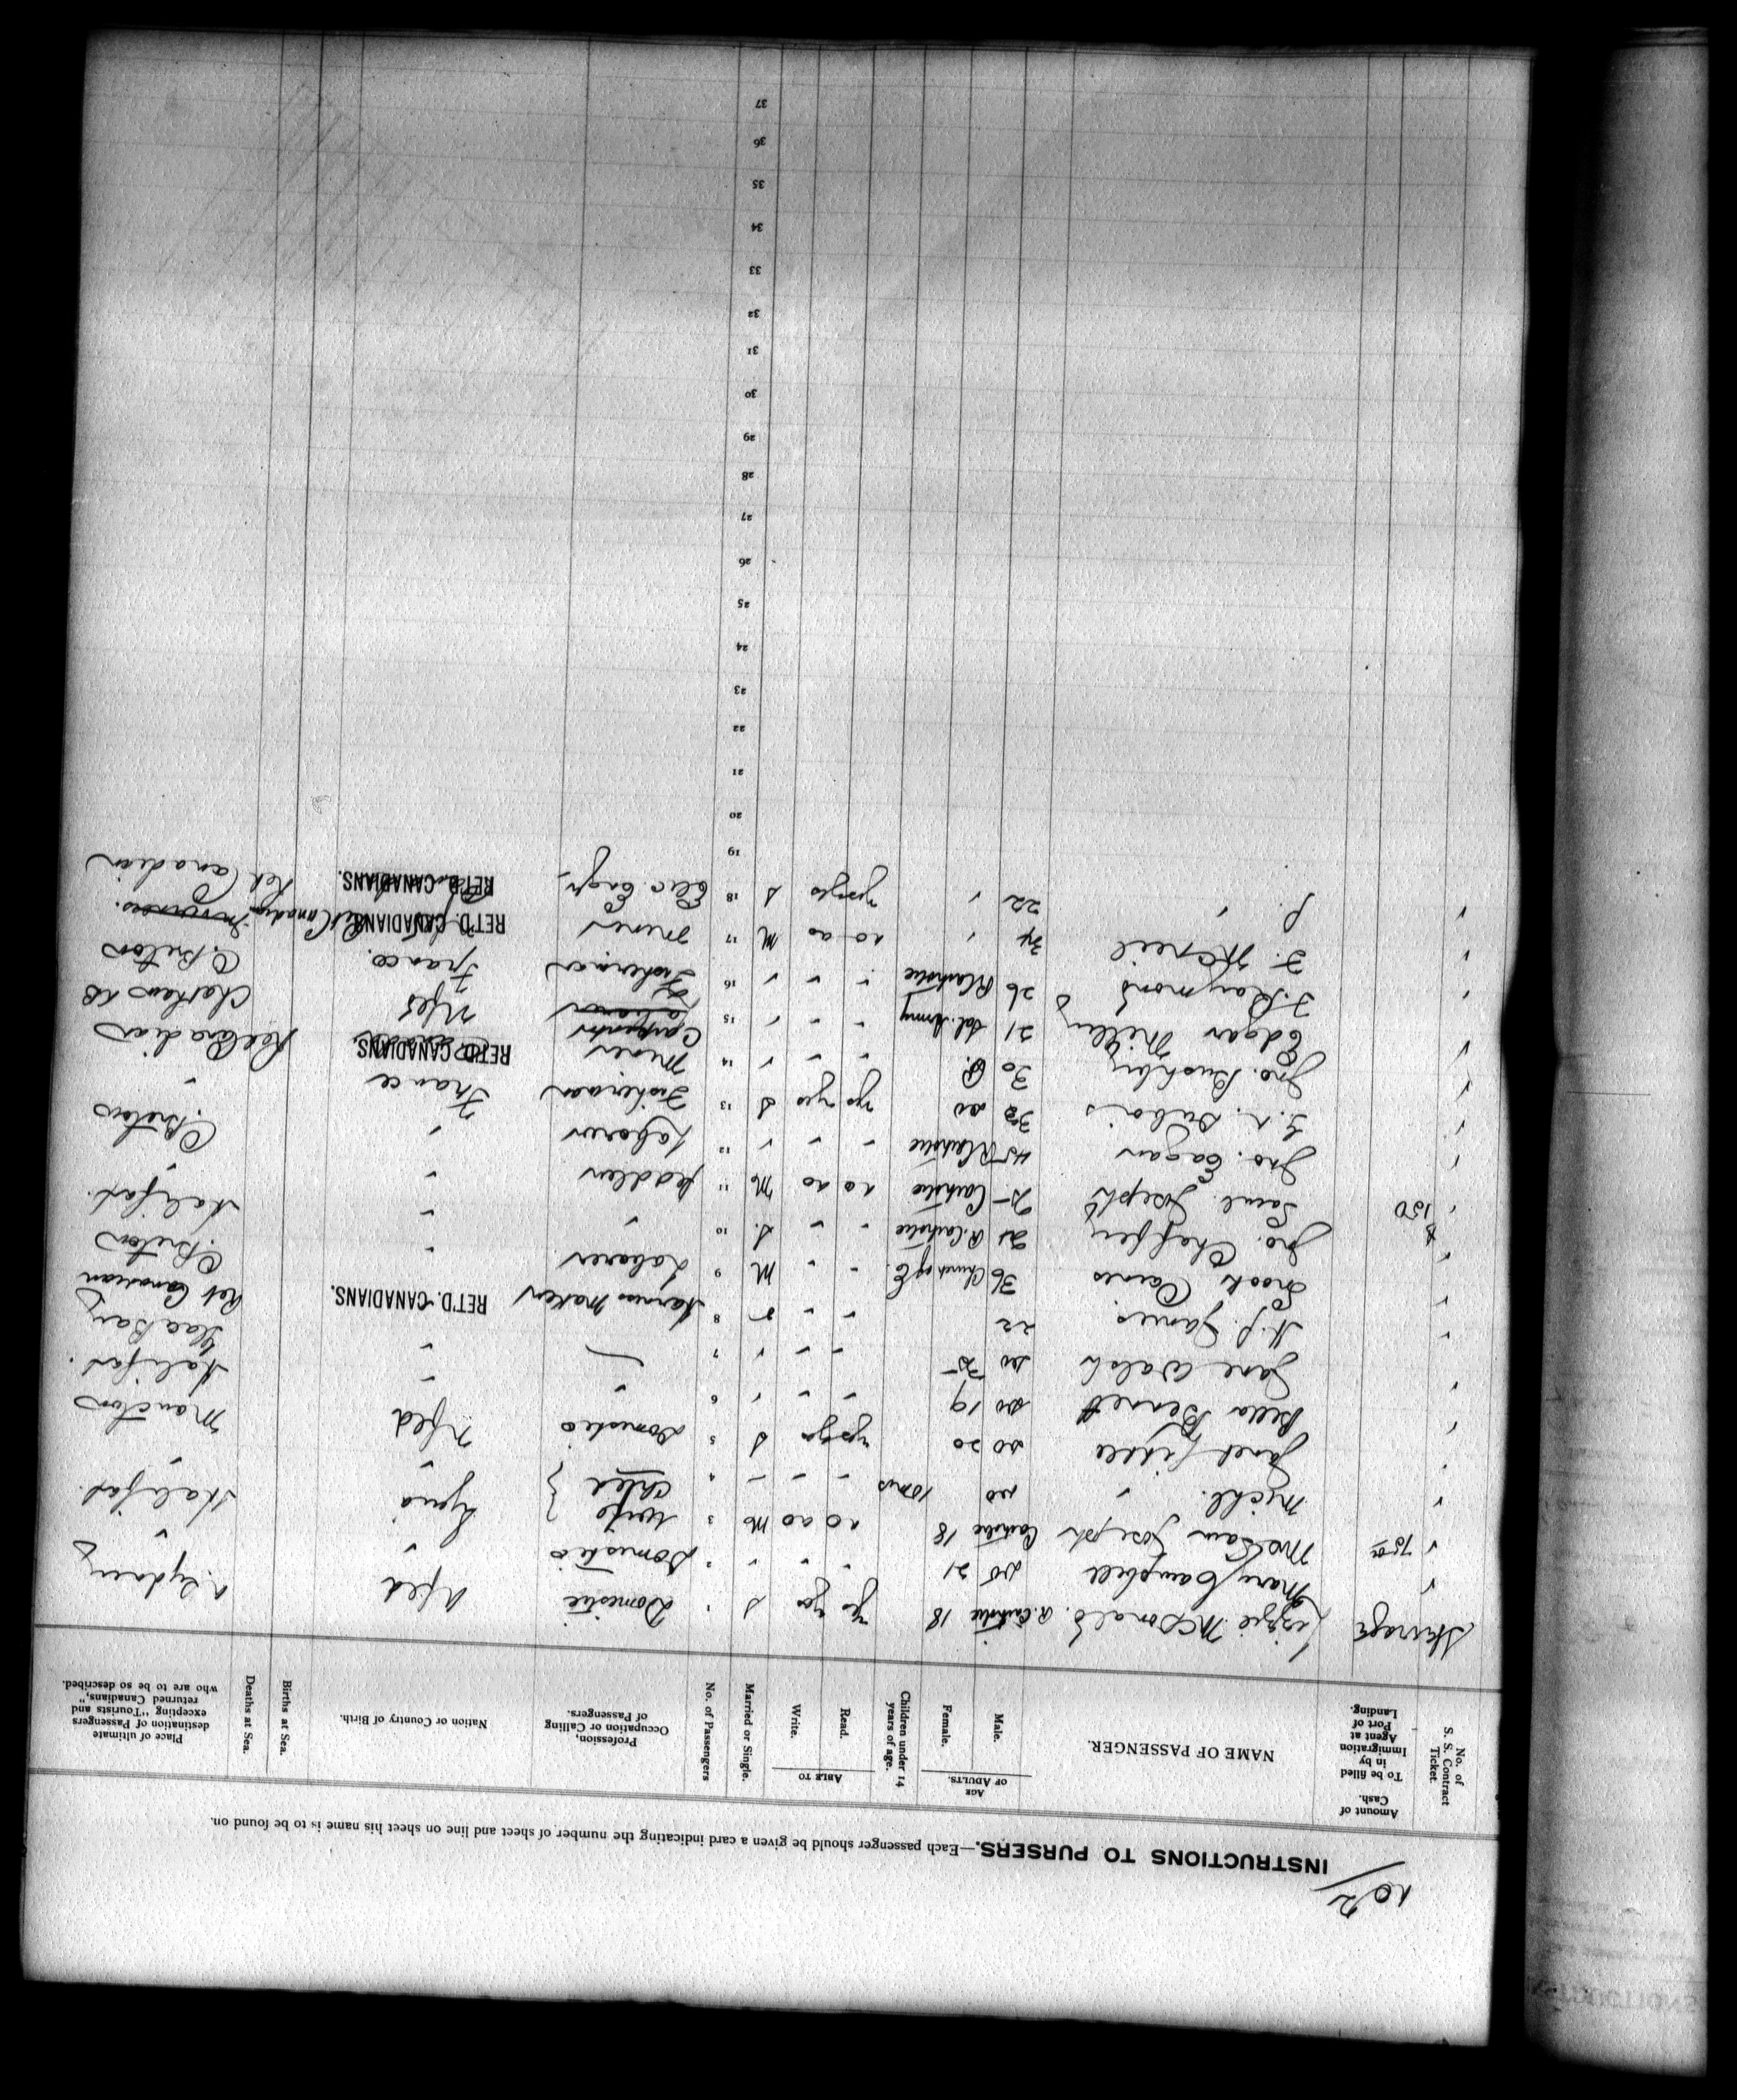 10/2
INSTRUCTIONS TO PURSERS.—Each passenger should be given a card indicating the number of sheet and line on sheet his name is to be found on.
No. of S. S. Contract Ticket. Amount of Cash. To be filled in by Immigration Agent at Port of Landing. NAME OF PASSENGER. AGE OF ADULTS. Male. Female. Children under 14 years of age. ABLE TO Read. Write. Married or Single. No. of Passengers Profession, Occupation or Calling of Passengers. Nation or Country of Birth. Births at Sea. Deaths at Sea. Place of ultimate destination of Passengers excepting "Tourists and returned Canadians," who are to be so described.
Steerage Lizzie McDonald R. Catholic 18 Yes Yes S 1 Domestic Nfld N. Sydney
" Mary Campbell do 21 " " " 2 Domestic " "
" 75 00 Joseph Catholic 18 no no M 3 Wife } Syria Halifax
" Michl. " do 10 mos - - - 4 Child } " "
Janet do 20 yes yes S 5 Domestic Nfld Moncton
" Bella Bennett do 19 " " " 6 " " Halifax.
" Jane Walsh do 25 " " " 7 " Glace Bay
" H. J. James 22 " " S 8 Harness Maker RET'D. CANADIANS. Ret Canadian
" Cairns 36 Church of E. " " M 9 Laborer " C. Breton
" Jno. R. Catholic " " S. 10 " " Halifax.
" $ 150 Saml. Joseph 25 Catholic no no M 11 Peddler " "
" Jno. Eagan 45 R Catholic " " " 12 Laborer " C Breton
" Dubois do yes yes S 13 Fisherman France "
" Jno. 30 " " " 14 Miner RET'D. CANADIANS Ret Canadian
" Edgar 21 Sal. Army " " " 15 Carpenter Nfld
" J. Raymond 26 R Catholic " " " 16 Fisherman France. C. Breton
" J. " no no M 17 Miner RET'D. CANADIANS Ret Canadian
" J. " 22 " yes yes S 18 Elec. Engr. RET'D. CANADIANS. Ret Canadian
19
20
21
22
23
24
25
26
27
28
29
30
31
32
33
34
35
36
37